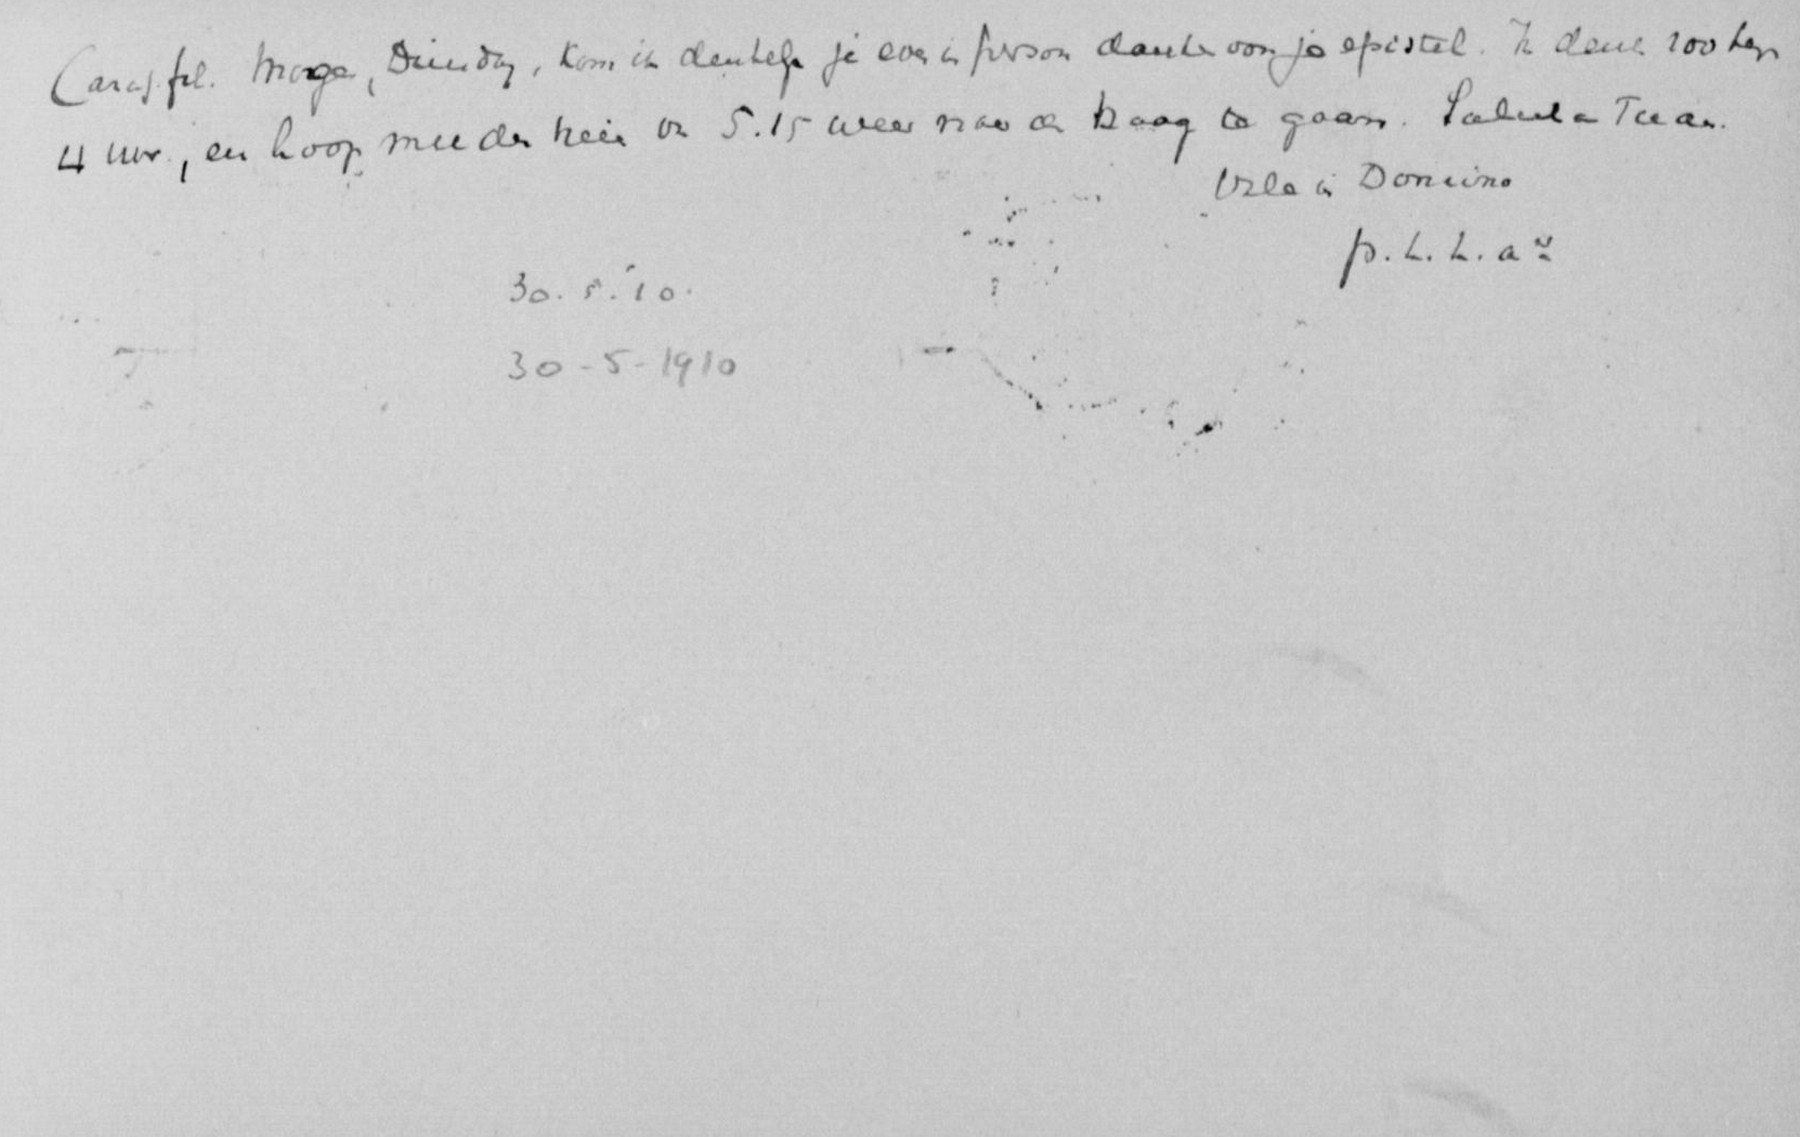 Caras. fil. Morgen, Dinsdag, kom ik denkelijk je even in persoon danken voor je epistel. Ik denk zoo tegen
4 uur, en hoop met den trein van 5.15 weer naar den Haag te gaan. Saluta Tuam.
Vale in Domino
p. h. h. a
30.5.'10.
30-5-1910